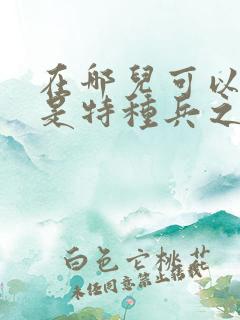 在哪兒可以
是特種兵之
白色亡桃花
未经同意禁止转载